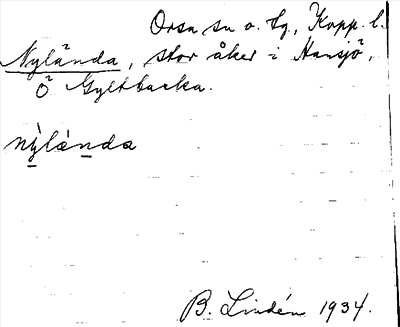 Orsa sn o. tg., Kopp. l.
Nylända, stor åker i Hansjö,
Ö Gyltbacka.
nỳlạ́nda
B. Lindén 1934.